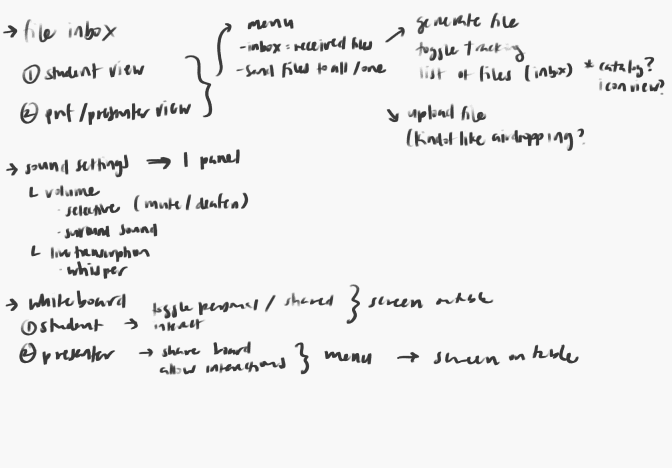 → file inbox
① student view
② prof/presenter view
menu
- inbox = received files
- send files to all/one
generate file
toggle tracking
list of files (inbox) * catalog?
icon view?
upload file
(kind of like airdropping?
→ sound settings → 1 panel
L volume
· selective (mute/deafen)
· surround sound
L live transcription
· whisper
→ whiteboard
① student → toggle personal / shared } screen on table
interact
② presenter → share board } menu → screen on table
allow interactions